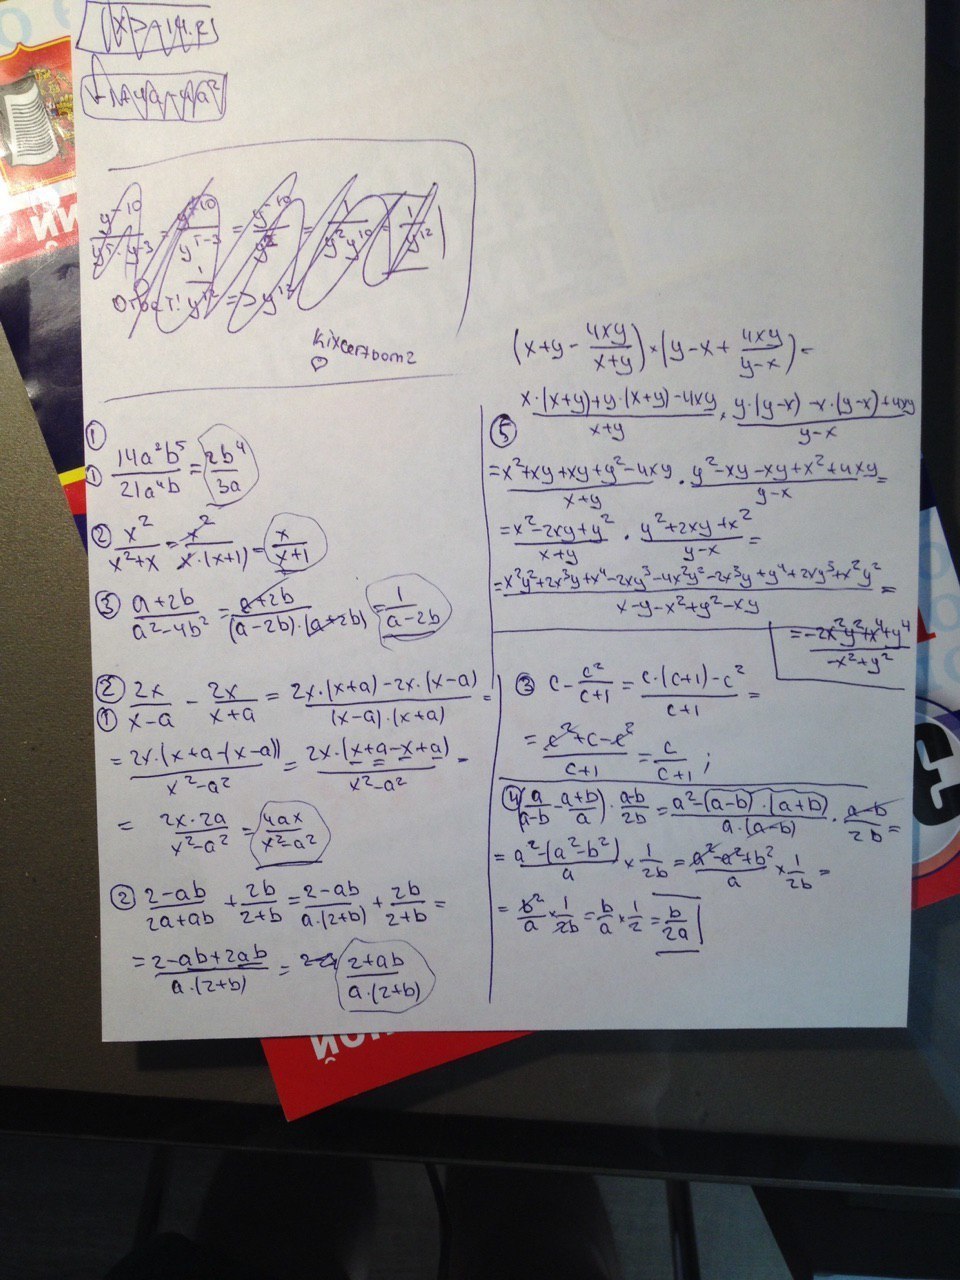 y⁻¹⁰/(y⁵·y⁻³) = y⁻¹⁰/y⁵⁻³ = y⁻¹⁰/y² = 1/(y²y¹⁰) = 1/y¹²
Ответ: 1/y¹² => y¹²
①
① 14a³b⁵/21a⁴b = 2b⁴/3a
② x²/(x²+x) = x²/(x·(x+1)) = x/(x+1)
③ (a+2b)/(a²-4b²) = (a+2b)/((a-2b)·(a+2b)) = 1/(a-2b)
②
① 2x/(x-a) - 2x/(x+a) = (2x·(x+a)-2x·(x-a))/((x-a)·(x+a)) =
= 2x·(x+a-(x-a))/(x²-a²) = 2x·(x+a-x+a)/(x²-a²) =
= 2x·2a/(x²-a²) = 4ax/(x²-a²)
② (2-ab)/(2a+ab) + 2b/(2+b) = (2-ab)/(a·(2+b)) + 2b/(2+b) =
= (2-ab+2ab)/(a·(2+b)) = (2+ab)/(a·(2+b))
(x+y - 4xy/(x+y)) × (y-x + 4xy/(y-x)) =
⑤ (x·(x+y)+y·(x+y)-4xy)/(x+y) × (y·(y-x)-x·(y-x)+4xy)/(y-x)
= (x²+xy+xy+y²-4xy)/(x+y) · (y²-xy-xy+x²+4xy)/(y-x) =
= (x²-2xy+y²)/(x+y) · (y²+2xy+x²)/(y-x) =
= (x²y²+2x³y+x⁴-2xy³-4x²y²-2x³y+y⁴+2xy³+x²y²)/(x-y-x²+y²-xy) =
= (-2x²y²+x⁴+y⁴)/(-x²+y²)
③ c - c²/(c+1) = (c·(c+1)-c²)/(c+1) =
= (c²+c-c²)/(c+1) = c/(c+1);
④ (a/(a-b) - (a+b)/a) · (a-b)/2b = (a²-(a-b)·(a+b))/(a·(a-b)) · (a-b)/2b =
= (a²-(a²-b²))/a × 1/2b = (a²-a²+b²)/a × 1/2b =
= b²/a × 1/2b = b/a × 1/2 = b/2a
ИЙ